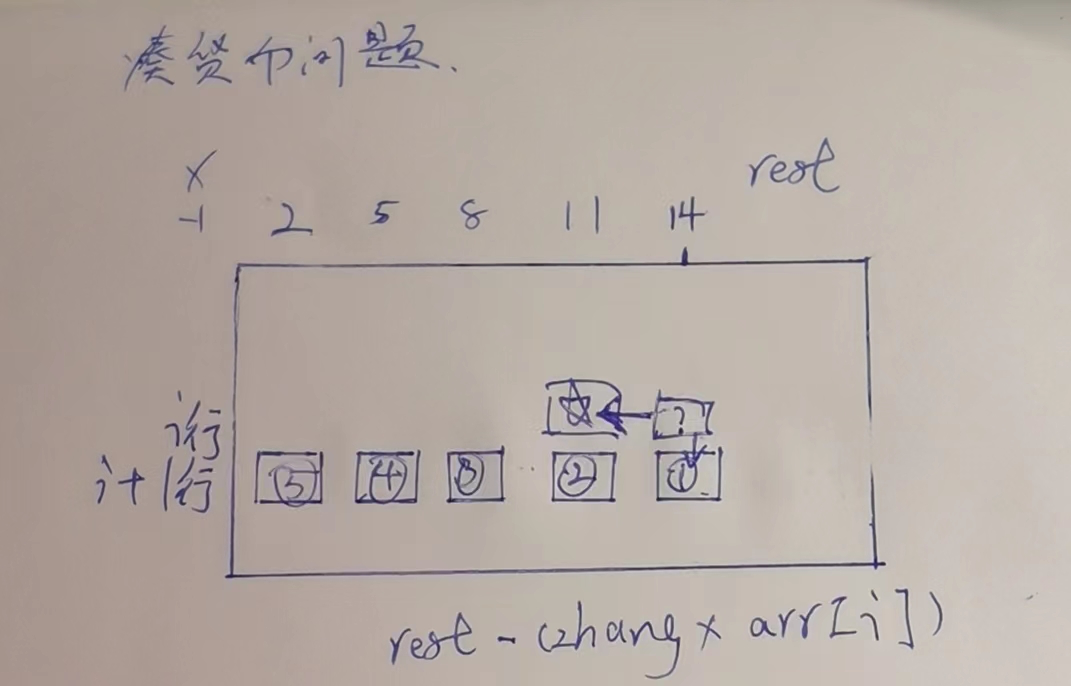 凑货币问题.
X
rest
-1 2 5 8 11 14
i行 ☆ ?
i+1行 ⑤ ④ ③ ‥ ② ①
rest - (zhang x arr[i])